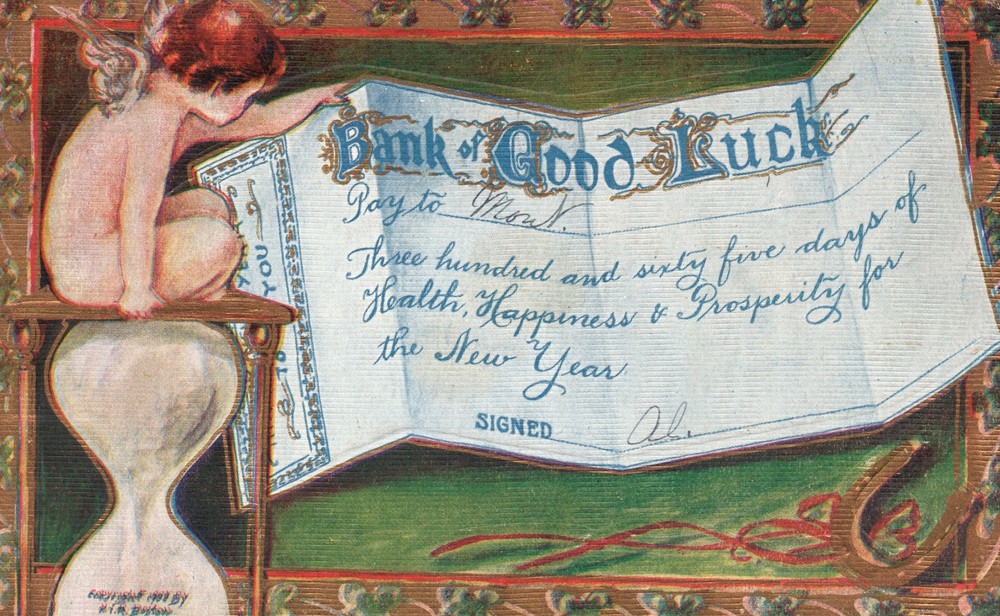 Bank of Good Luck
Pay to Mont.
Three hundred and sixty five days of
Health, Happiness & Prosperity for
the New Year
SIGNED Al.
TO YOU
COPYRIGHT 1909 BY